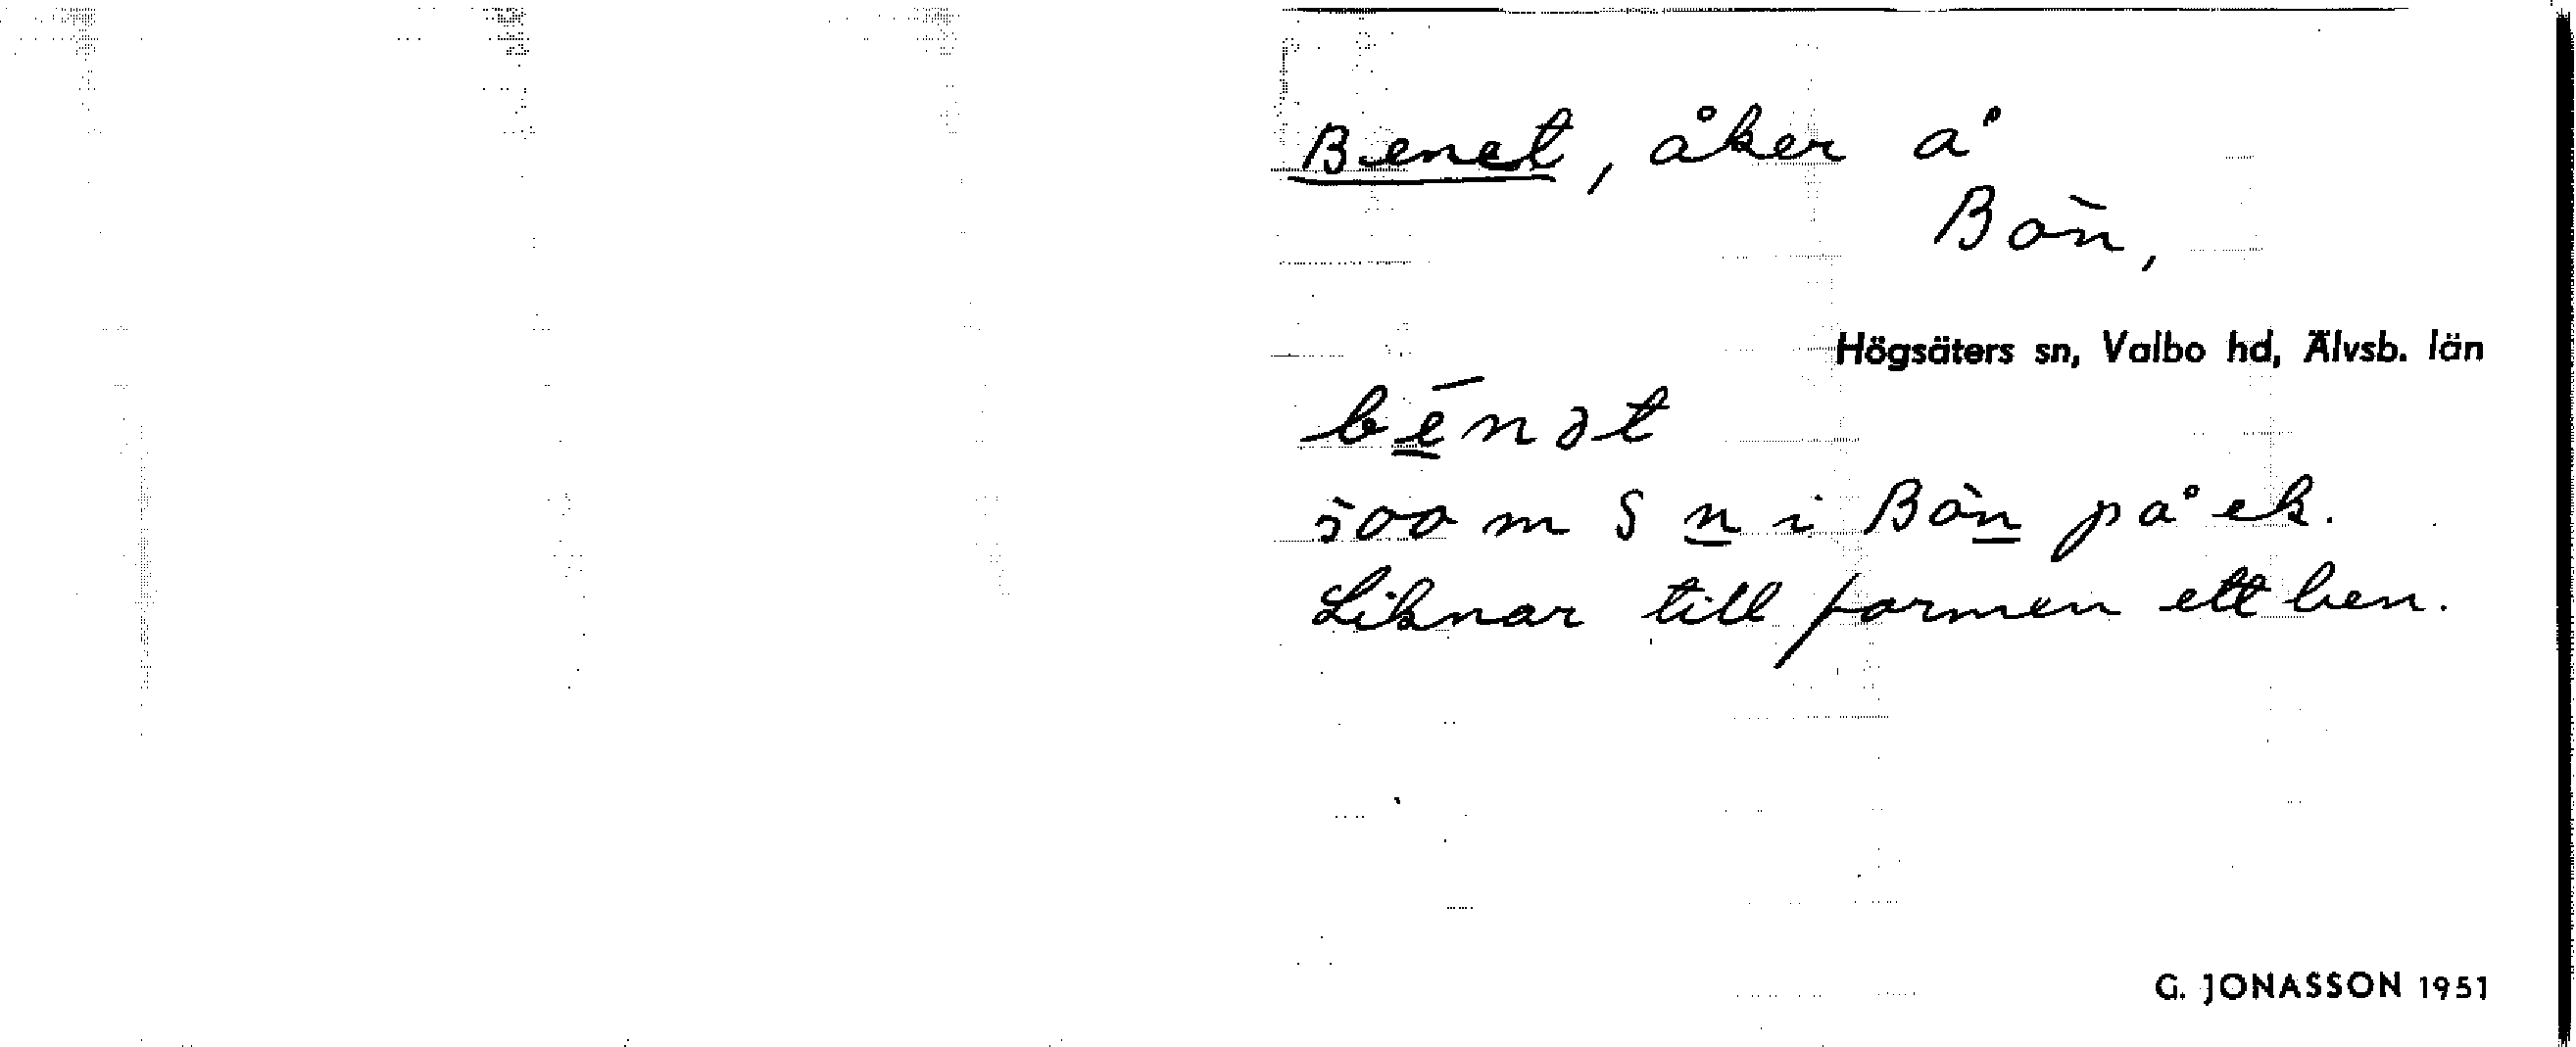 Benet, åker å
Bön,
Högsäters sn, Valbo hd, Älvsb. län
bēnət
500 m S n i Bön på ek.
Liknar till formen ett ben.
G. JONASSON 1951